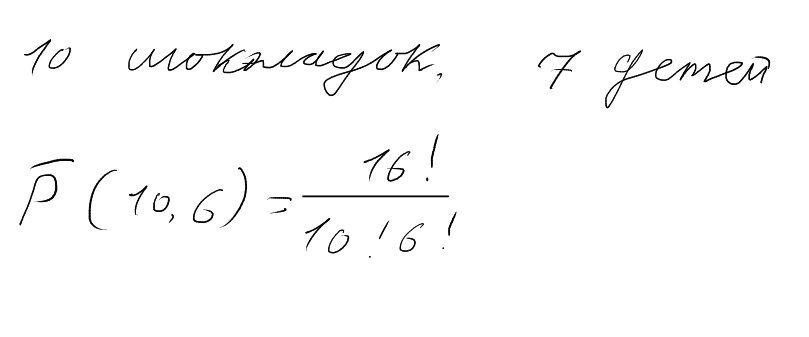 10 шокладок, 7 детей
P̅ (10, 6) = 16! / 10! 6!